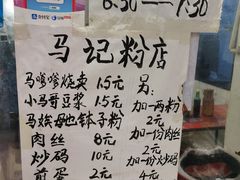 6:30——1:30
支付宝
马记粉店
马嗲嗲烧卖 1.5元 另:
小马哥豆浆 1.5元 加一两粉
马娭毑地钵子粉 2元 2元
肉丝 8元 加一份肉丝
炒码 10元 2元 加一份炒码
煎蛋 2元 4元